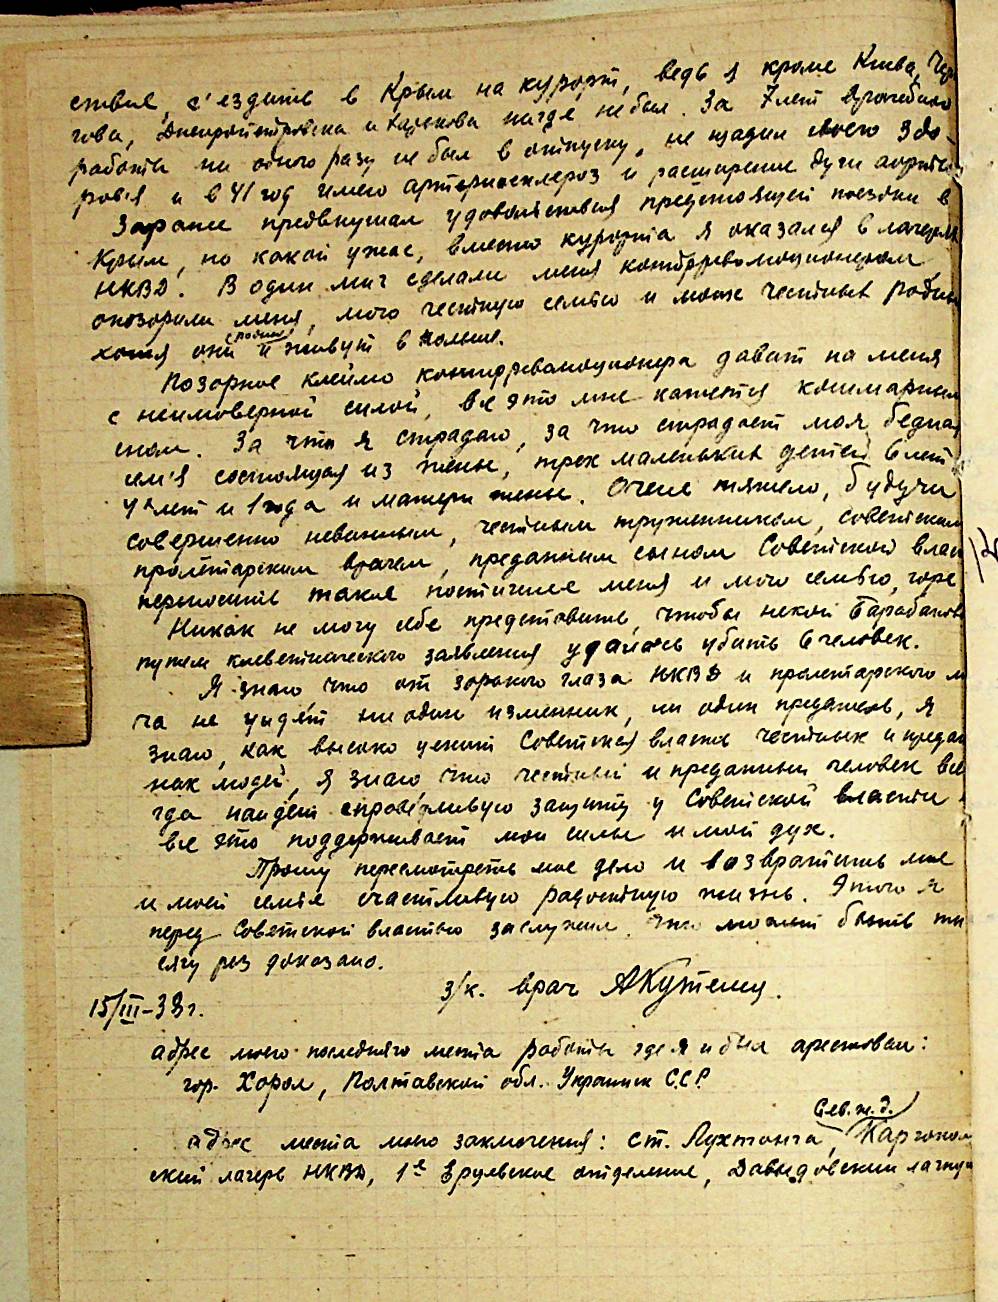 ствие, с'ездить в Крым на курорт, ведь я кроме Киева, Чер
гова, Днепропетровска и Харькова нигде не был. За 7 лет врачебной
работы ни одного разу не был в отпуску, не щадил своего здо-
ровья и в 41 год имею артериосклероз и расширение дуги аорты
Заранее предвкушал удовольствия предстоящей поездки в
Крым, но какой ужас, вместо курорта я оказался в лагерях
НКВД. В один миг сделали меня контрреволюционером
опозорили меня, мою честную семью и моих честных родных
(родные)
хотя они и живут в Польше.
Позорное клеймо контрреволюционера давит на меня
с неимоверной силой, все это мне кажется кошмарным
сном. За что я страдаю, за что страдает моя бедная
сем'я состоящая из жены, трех маленьких детей 6 лет
4х лет и 1 года и матери жены. Очень тяжело, будучи
совершенно невинным, честным тружеником, советским
пролетарским врачем, преданным сыном Советской влас
переносить такое постигшее меня и мою семью, горе
Никак не могу себе представить, чтобы некой Барабановой
путем клеветнического заявления удалось убить 6 человек.
Я знаю что от зоркого глаза НКВД и пролетарского м
ча не уйдет ни один изменник, ни один предатель, я
знаю, как высоко ценит Советская власть честных и предан
ных людей, я знаю что честный и преданный человек все
гда найдет справедливую защиту у Советской власти.
все это поддерживает мои силы и мой дух.
Прошу пересмотреть мое дело и возвратить мне
и моей семье счастливую радостную жизнь. Этого я
перед Советской властью заслужил, что может быть ты
сячу раз доказано.
з/к. врач АКутенец.
15/III-39г.
адрес моего последнего места работы где я и был арестован:
гор. Хорол, Полтавской обл. Украинск С.С.Р.
Сев. ж. д.
адрес места моего заключения: ст. Лухтонга, Каргополь
ский лагерь НКВД, 1е отделение, Давыдовский лагпун
12